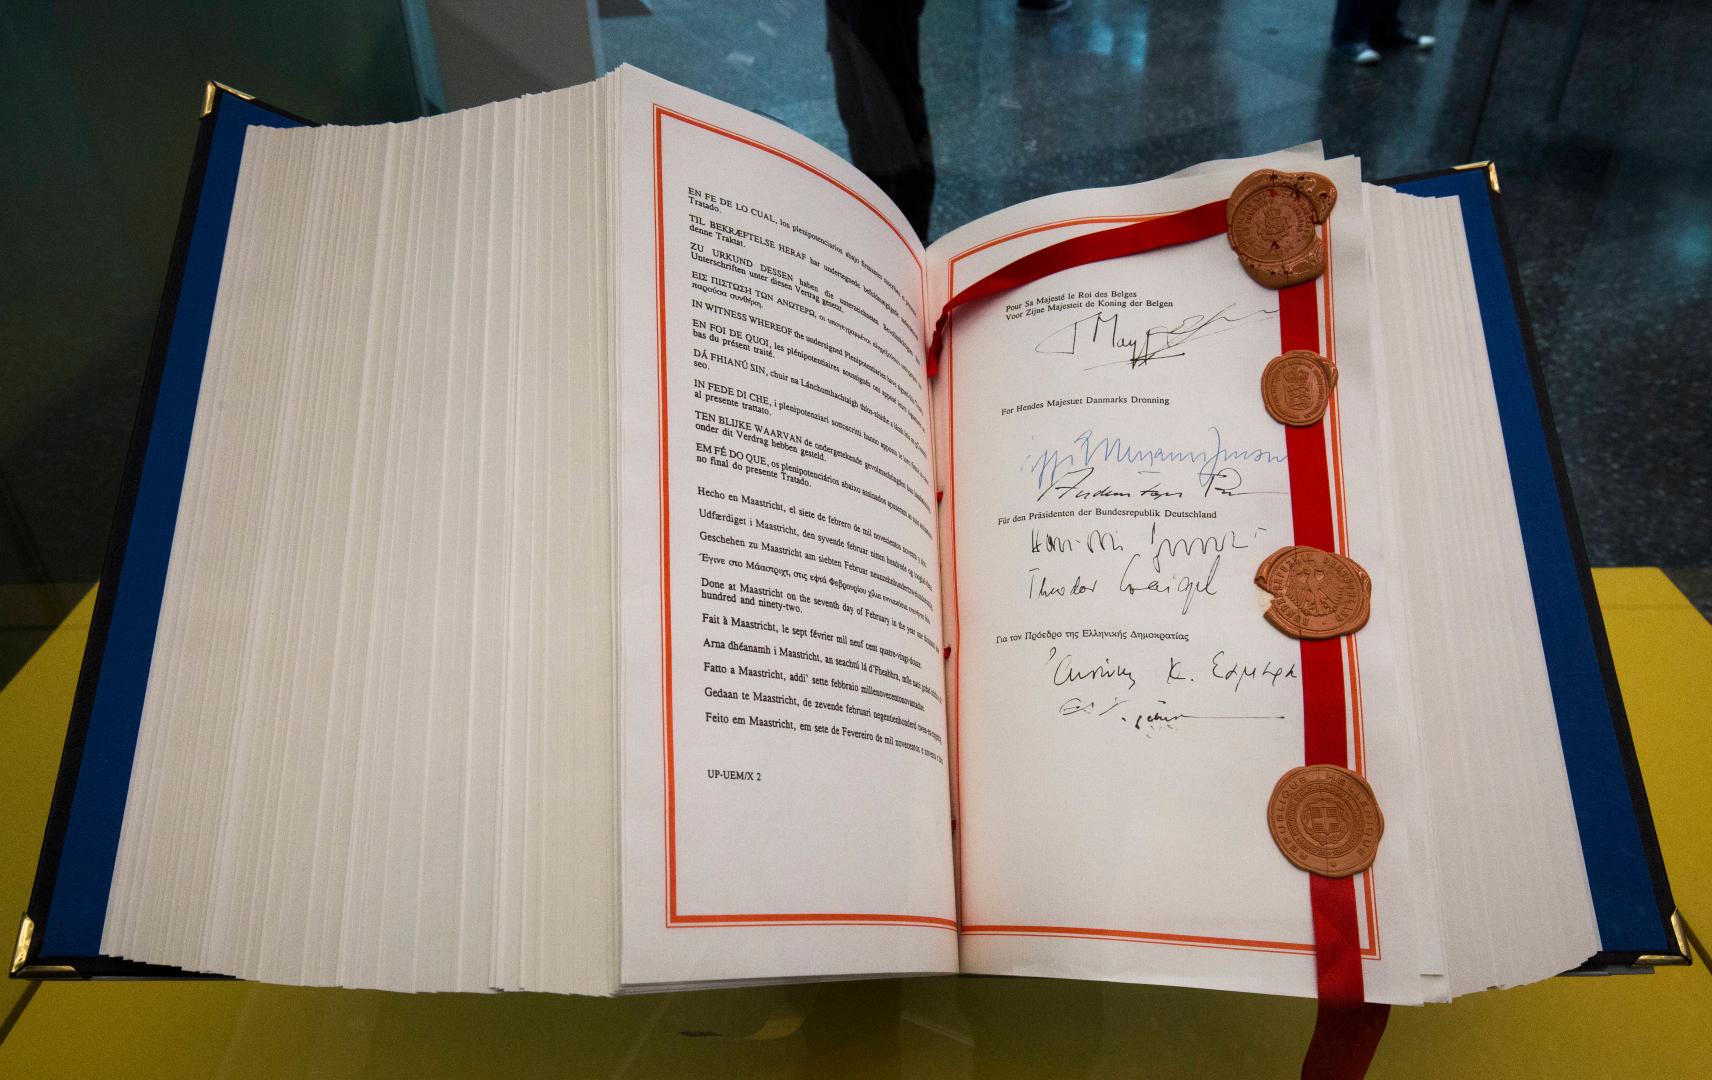 EN FE DE LO CUAL, los plenipotenciarios abajo firmantes suscriben el presente
Tratado.
TIL BEKRÆFTELSE HERAF har undertegnede befuldmægtigede underskrevet
denne Traktat.
ZU URKUND DESSEN haben die unterzeichneten Bevollmächtigten ihre
Unterschriften unter diesen Vertrag gesetzt.
ΕΙΣ ΠΙΣΤΩΣΗ ΤΩΝ ΑΝΩΤΕΡΩ, οι υπογεγραμμένοι πληρεξούσιοι υπέγραψαν την
παρούσα συνθήκη.
IN WITNESS WHEREOF the undersigned Plenipotentiaries have signed this Treaty.
EN FOI DE QUOI, les plénipotentiaires soussignés ont apposé leurs signatures au
bas du présent traité.
DÁ FHIANÚ SIN, chuir na Lánchumhachtaigh thíos-sínithe a lámh leis an
seo.
IN FEDE DI CHE, i plenipotenziari sottoscritti hanno apposto le loro firme in calce
al presente trattato.
TEN BLIJKE WAARVAN de ondergetekende gevolmachtigden hun handtekening
onder dit Verdrag hebben gesteld.
EM FÉ DO QUE, os plenipotenciários abaixo assinados apuseram as suas assinaturas
no final do presente Tratado.
Hecho en Maastricht, el siete de febrero de mil novecientos noventa y dos.
Udfærdiget i Maastricht, den syvende februar nitten hundrede og
Geschehen zu Maastricht am siebten Februar
Έγινε στο Μάαστριχτ, στις εφτά Φεβρουαρίου χίλια εννιακόσια
Done at Maastricht on the seventh day of February in the year one thousand nine
hundred and ninety-two.
Fait à Maastricht, le sept février mil neuf cent quatre-vingt-douze.
Arna dhéanamh i Maastricht, an seachtú lá d'Fheabhra, míle naoi gcéad
Fatto a Maastricht, addì' sette febbraio millenovecentonovantadue.
Gedaan te Maastricht, de zevende februari negentienhonderd twee-en-negentig.
Feito em Maastricht, em sete de Fevereiro de mil novecentos e noventa e dois.
UP-UEM/X 2
Pour Sa Majesté le Roi des Belges
Voor Zijne Majesteit de Koning der Belgen
For Hendes Majestæt Danmarks Dronning
Für den Präsidenten der Bundesrepublik Deutschland
Theodor Waigel
Για τον Πρόεδρο της Ελληνικής Δημοκρατίας
REPUBLIQUE HELLENIQUE